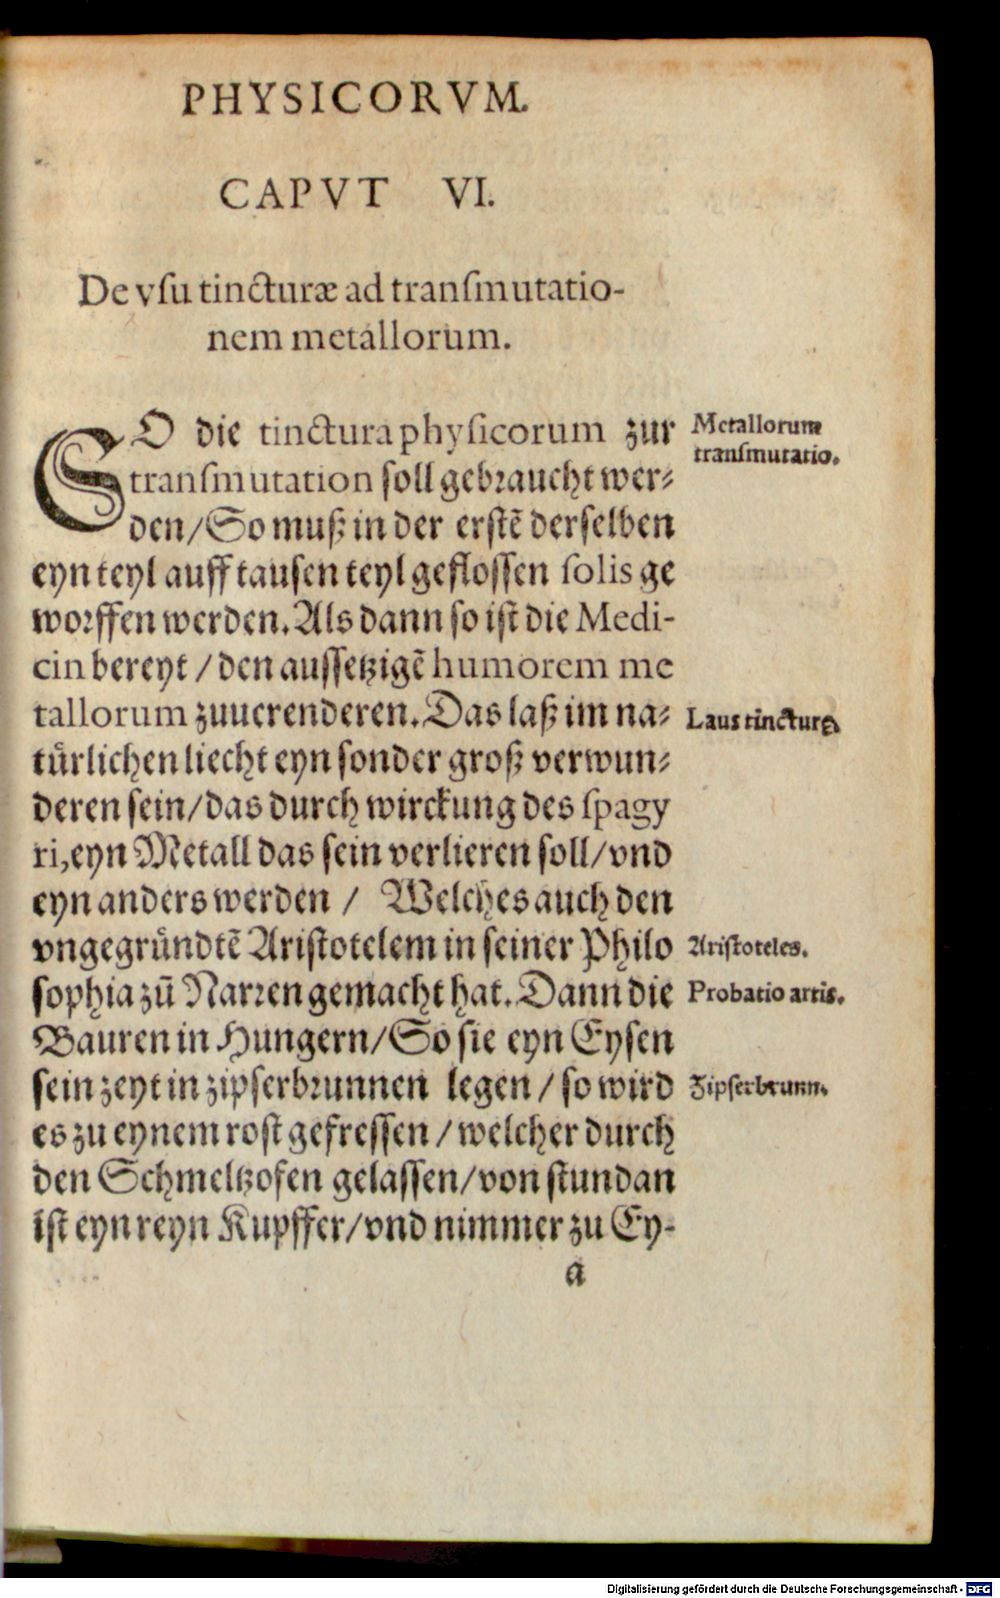 PHYSICORVM.
CAPVT VI.
De vſu tincturæ ad tranſmutatio-
nem metallorum.
SO die tinctura phyſicorum zur
tranſmutation ſoll gebraucht wer⸗
den/So muß in der erſtẽ derſelben
eyn teyl auff tauſen teyl gefloſſen ſolis ge
worffen werden. Als dann ſo iſt die Medi-
cin bereyt / den auſſetzigẽ humorem me
tallorum zuuerenderen. Das laß im na⸗
tuͤrlichen liecht eyn ſonder groß verwun⸗
deren ſein/das durch wirckung des ſpagy
ri, eyn Metall das ſein verlieren ſoll/vnd
eyn anders werden / Welches auch den
vngegruͤndtẽ Ariſtotelem in ſeiner Philo
ſophia zũ Narren gemacht hat. Dann die
Bauren in Hungern/So ſie eyn Eyſen
ſein zeyt in zipſerbrunnen legen / ſo wird
es zu eynem roſt gefreſſen / welcher durch
den Schmeltzofen gelaſſen/von ſtundan
iſt eyn reyn Kupffer/vnd nimmer zu Ey-
a
Metallorum
tranſmutatio.
Laus tincturę.
Ariſtoteles.
Probatio artis.
Zipſerbrunn.
Digitalisierung gefördert durch die Deutsche Forschungsgemeinschaft - DFG